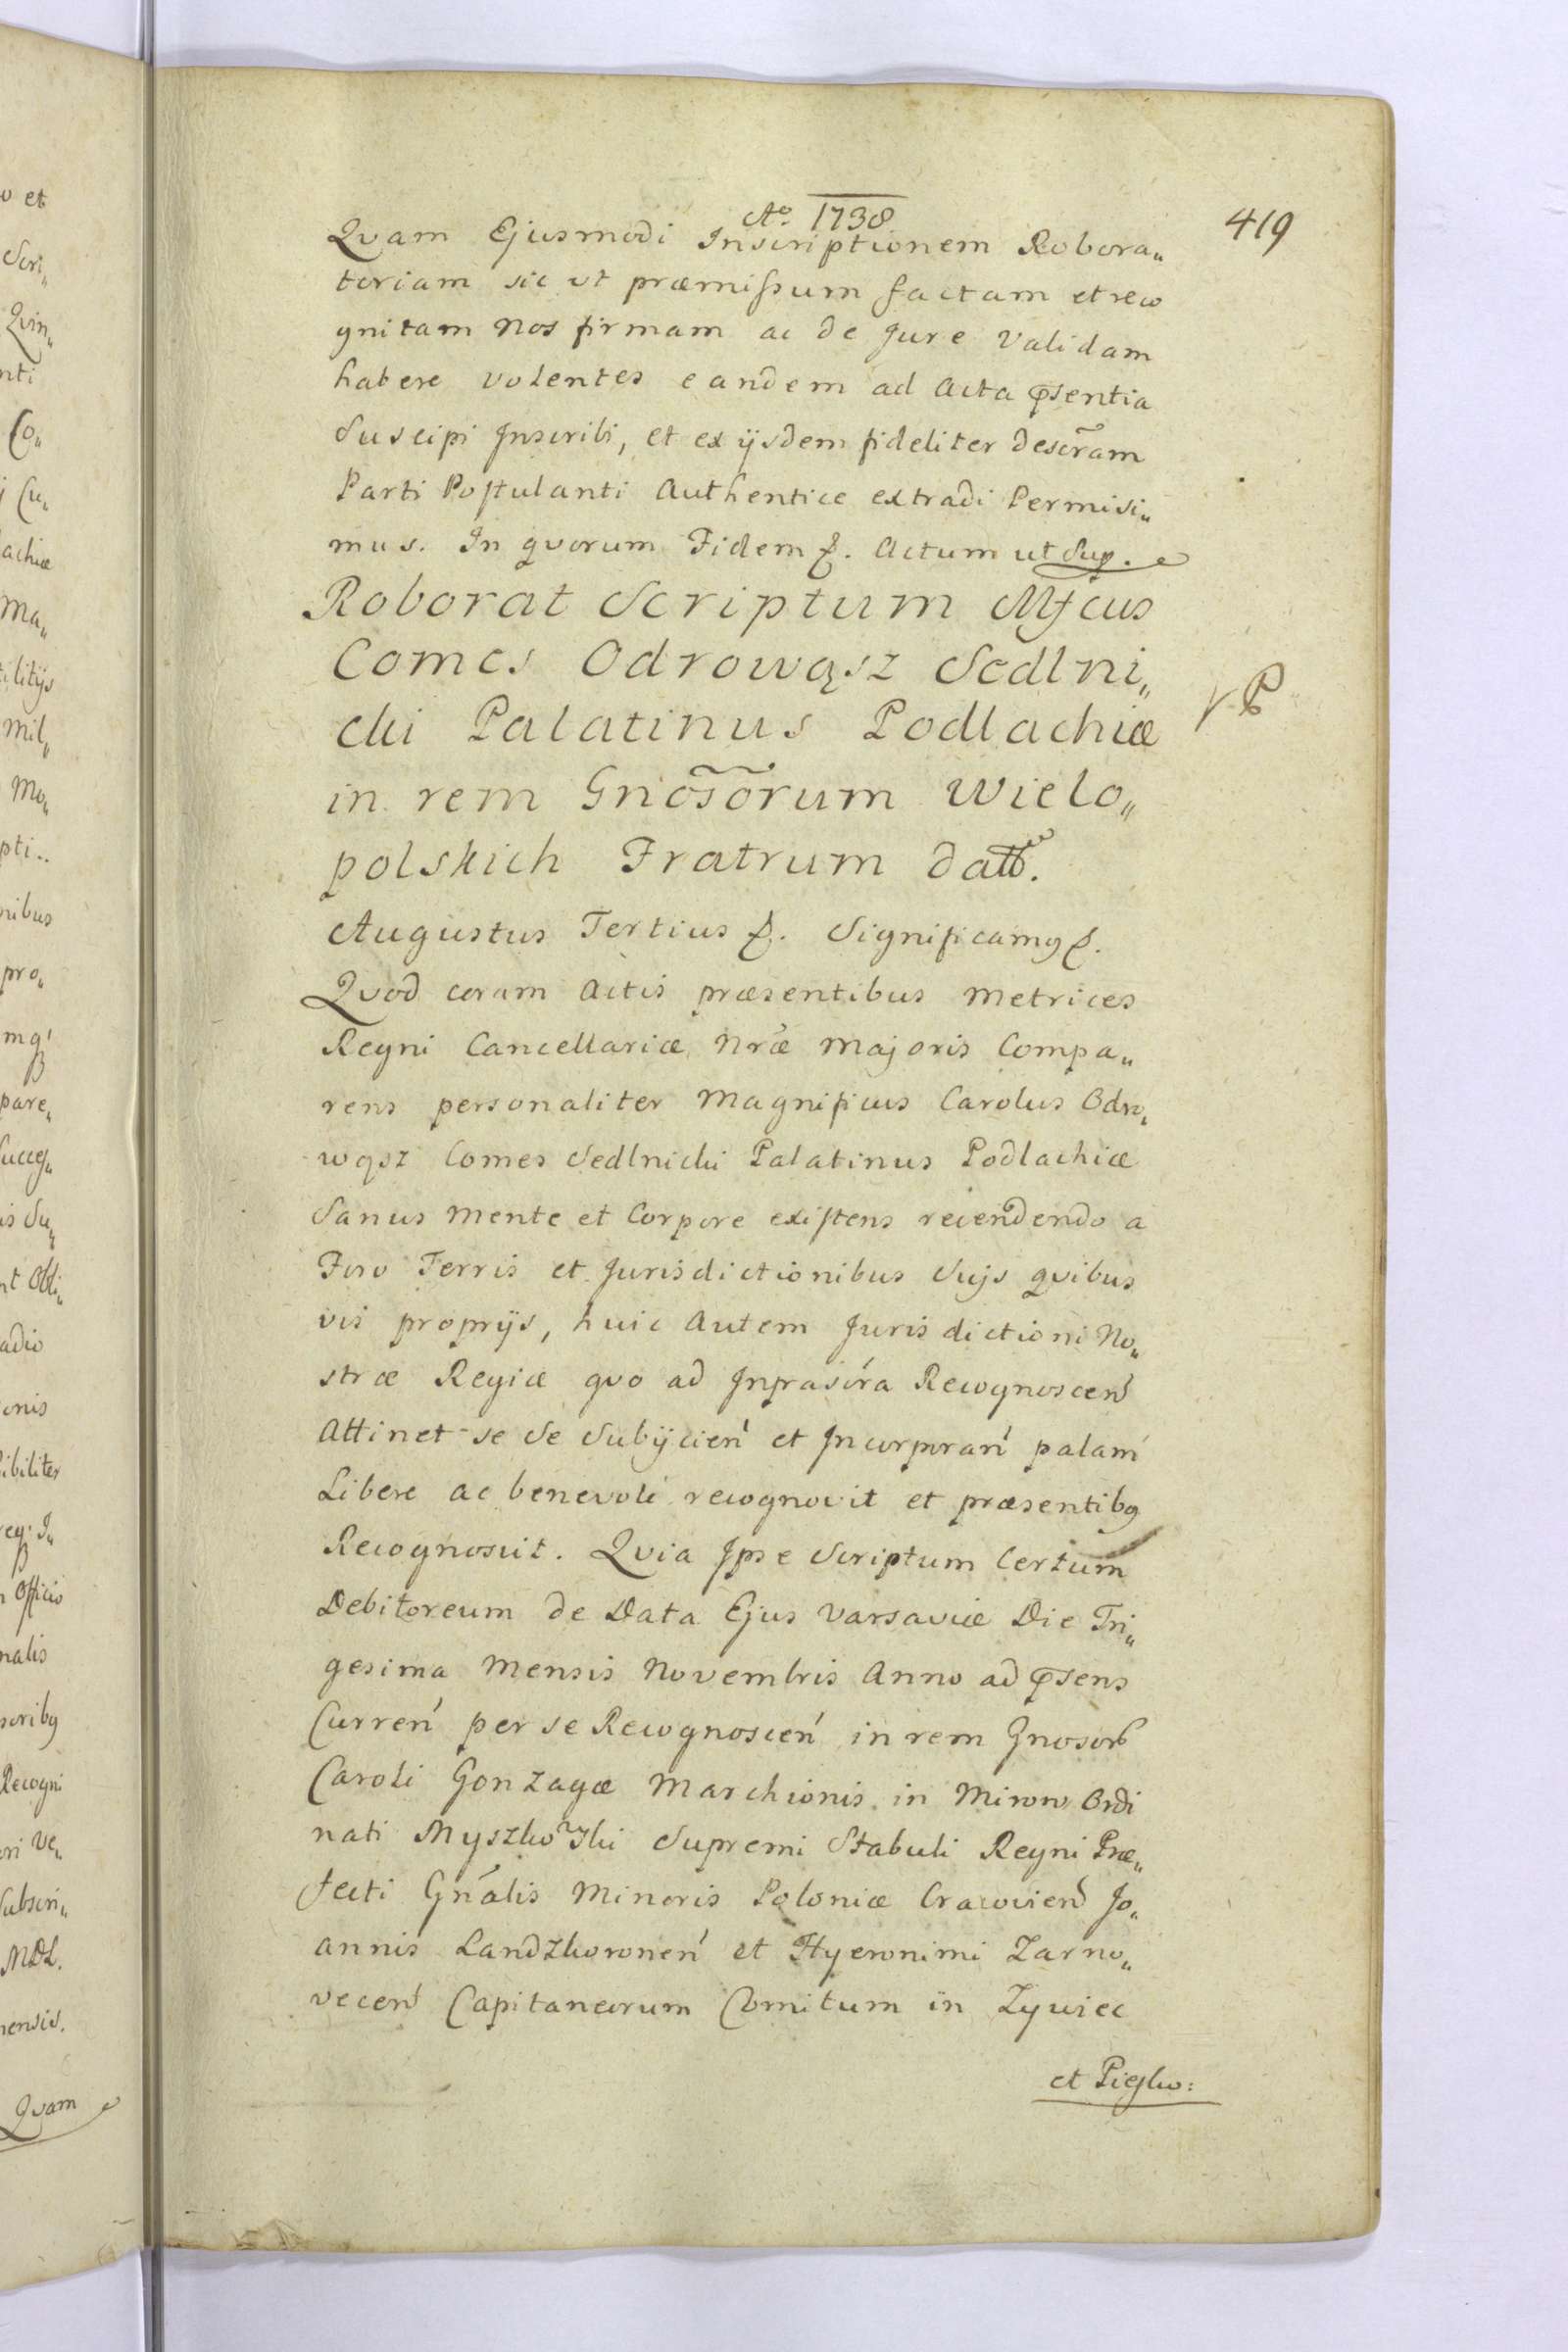 Ao. 1738
419
Quam Ejusmodi Inscriptionem Robora„
toriam sic ut præmissum factam et reco
gnitam Nos firmam ac de Jure Validam
habere volentes eandem ad Acta p̃sentia
Suscipi Inscribi, et ex ijsdem fideliter descr̃am
Parti Postulanti Authentice extradi Permisi„
mus. In quorum Fidem &. Actum ut Sup.
Roborat Scriptum Mfcus
Comes Odrowąsz Sedlni„
cki Palatinus Podlachiæ
in rem Gnosõrum Wielo„
polskich Fratrum
Augustus Tertius &. Significamq &.
Quod coram Actis præsentibus Metrices
Regni Cancellariæ Nræ Majoris Compa„
rens personaliter Magnificus Carolus Odro„
wąsz Comes Sedlnicki Palatinus Podlachiæ
Sanus Mente et Corpore existens recendendo a
Foro Terris et Jurisdictionibus Suijs quibus
vis proprijs, huic Autem Jurisdictioni No„
stræ Regiæ quo ad Infrascŕa Recognoscen̄
Attinet se se Subijcień et Incorporań palam
Libere ac benevole recognovit et præsentibq
Recognoscit. Quia Ipse Scriptum Certum
Debitoreum de Data Ejus Varsaviæ Die Tri„
gesima Mensis Novembris Anno ad p̃sens
Curreń per se Recognosceń in rem Gnosorb
Caroli Gonzagæ Marchionis in Mirow Ordi
nati Myszkowski Supremi Stabuli Regni Præ„
fecti Gńalis Minoris Poloniæ Cracovień Jo„
annis Landzkoroneń et Hyeronimi Zarno„
veceń Capitaneorum Comitum in Zywiec
et Piesko: